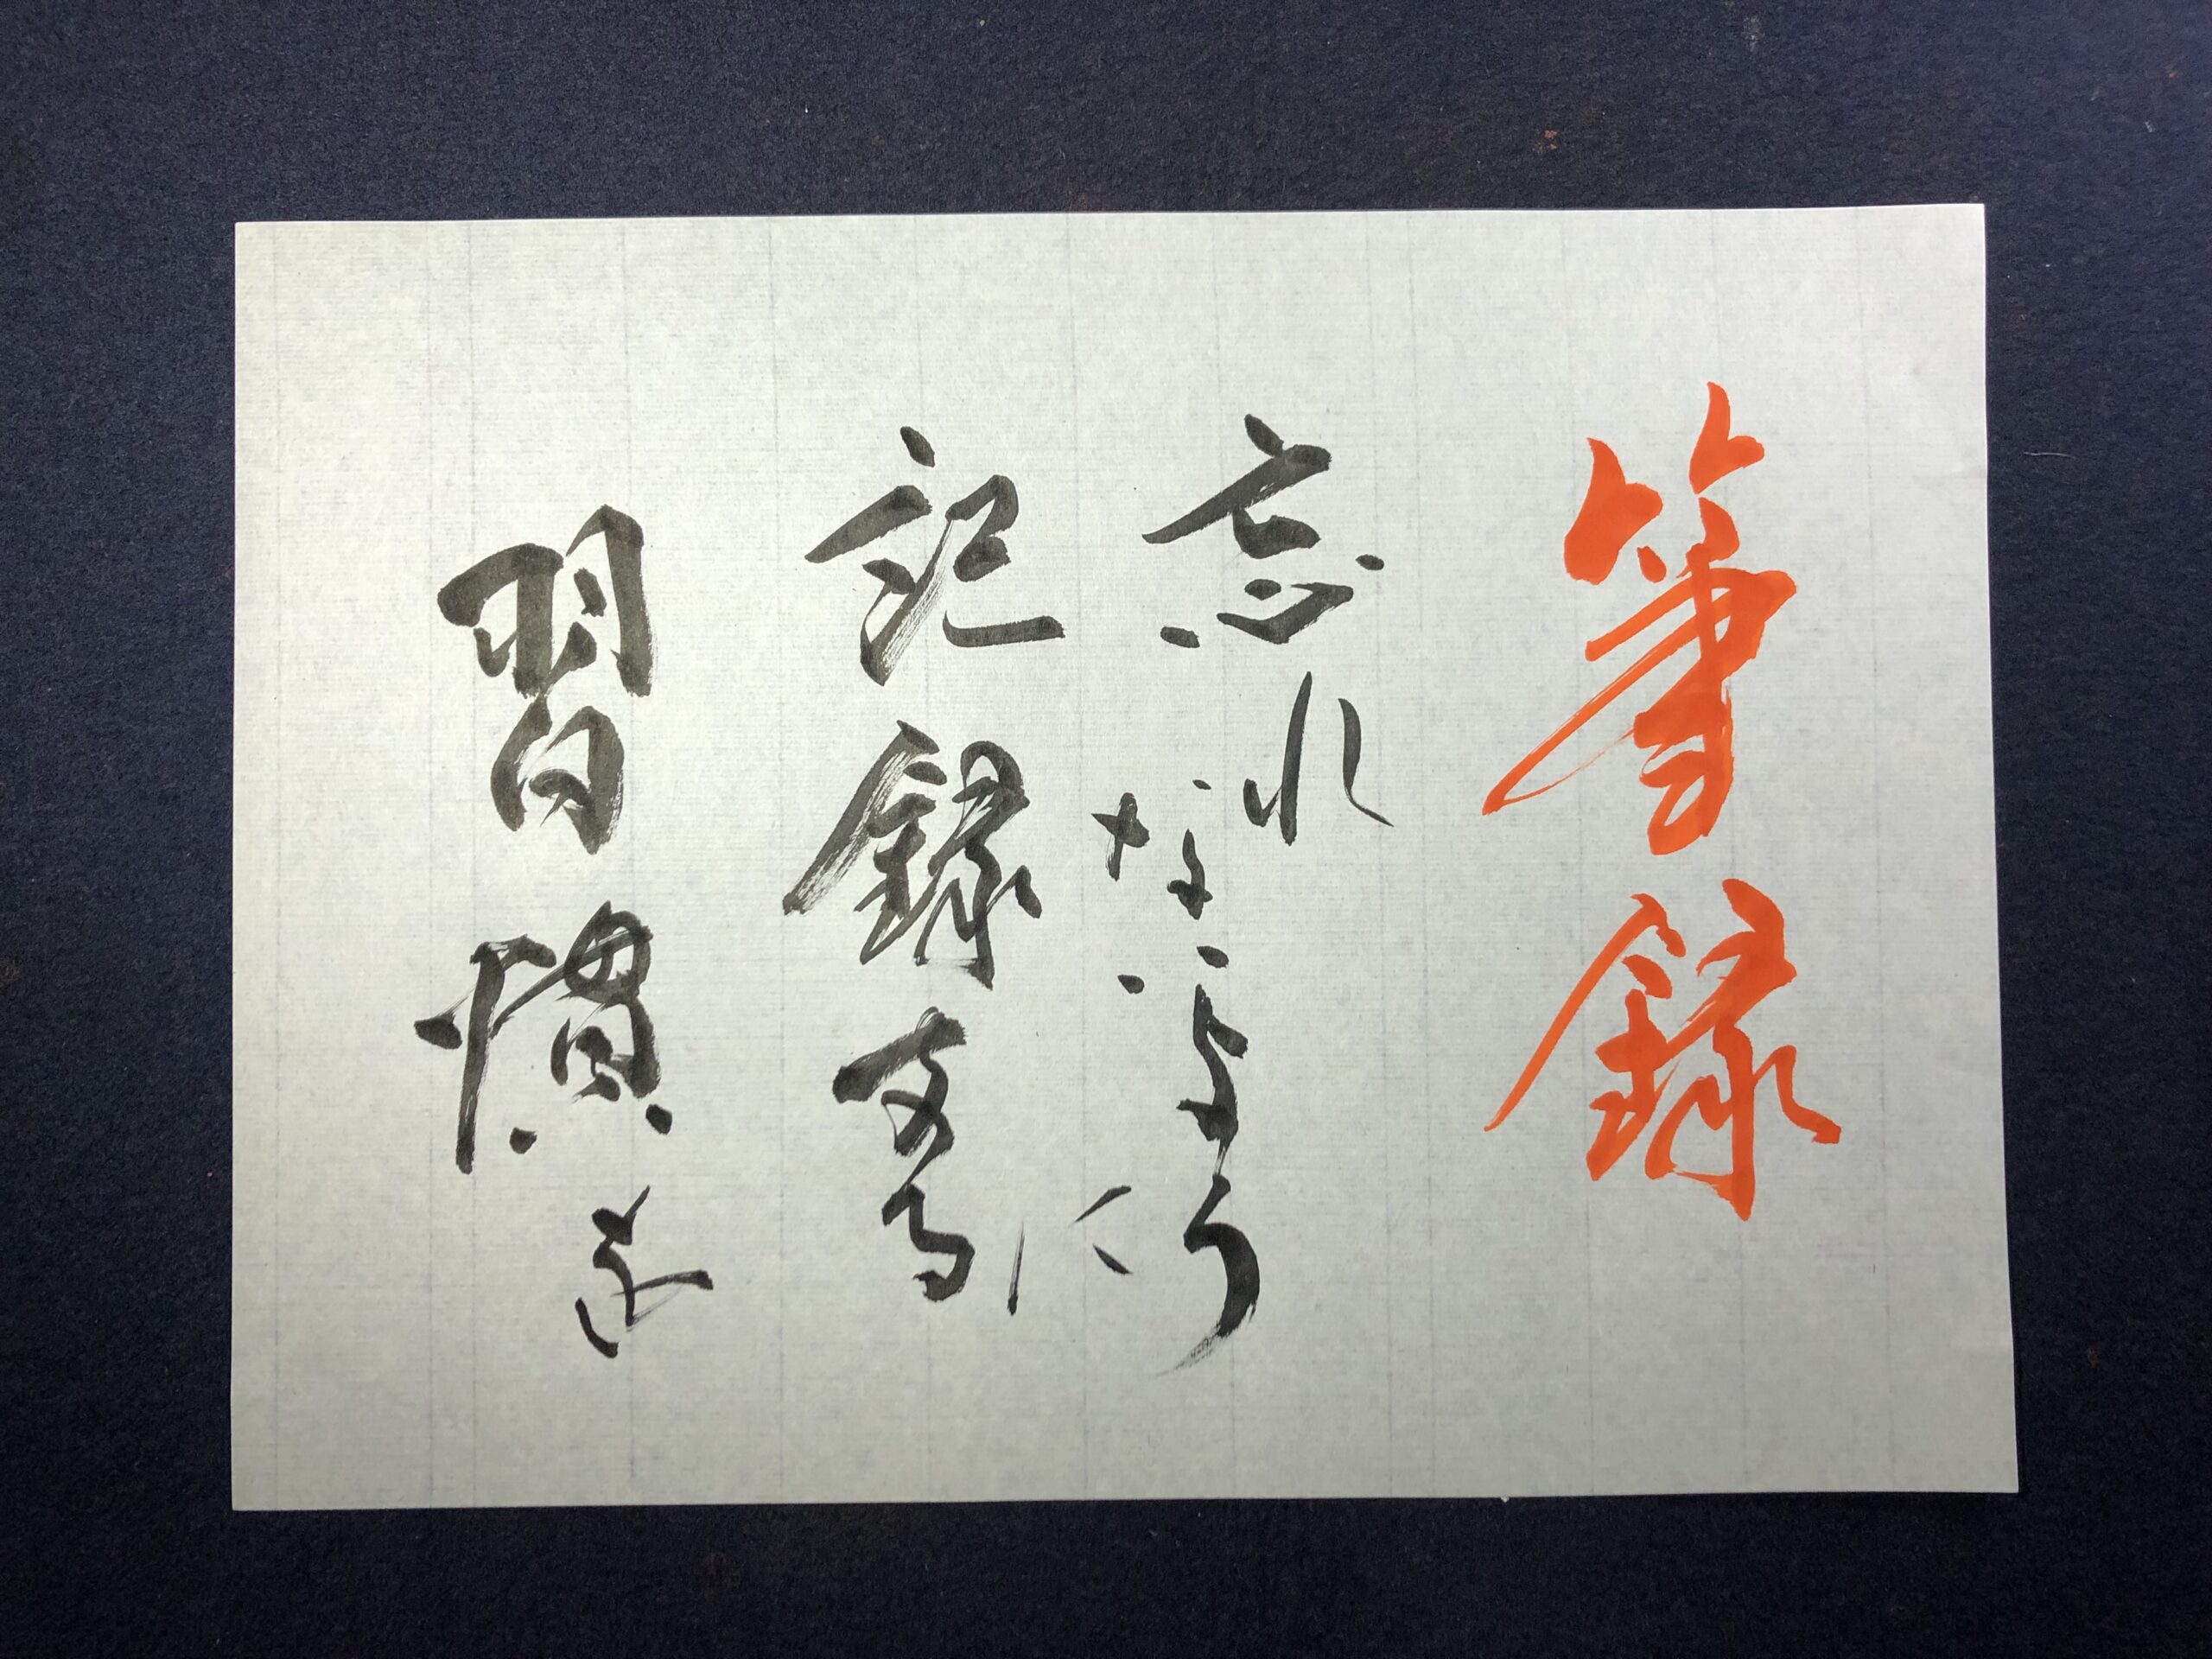 箸録
忘れないように
記録する
習慣を